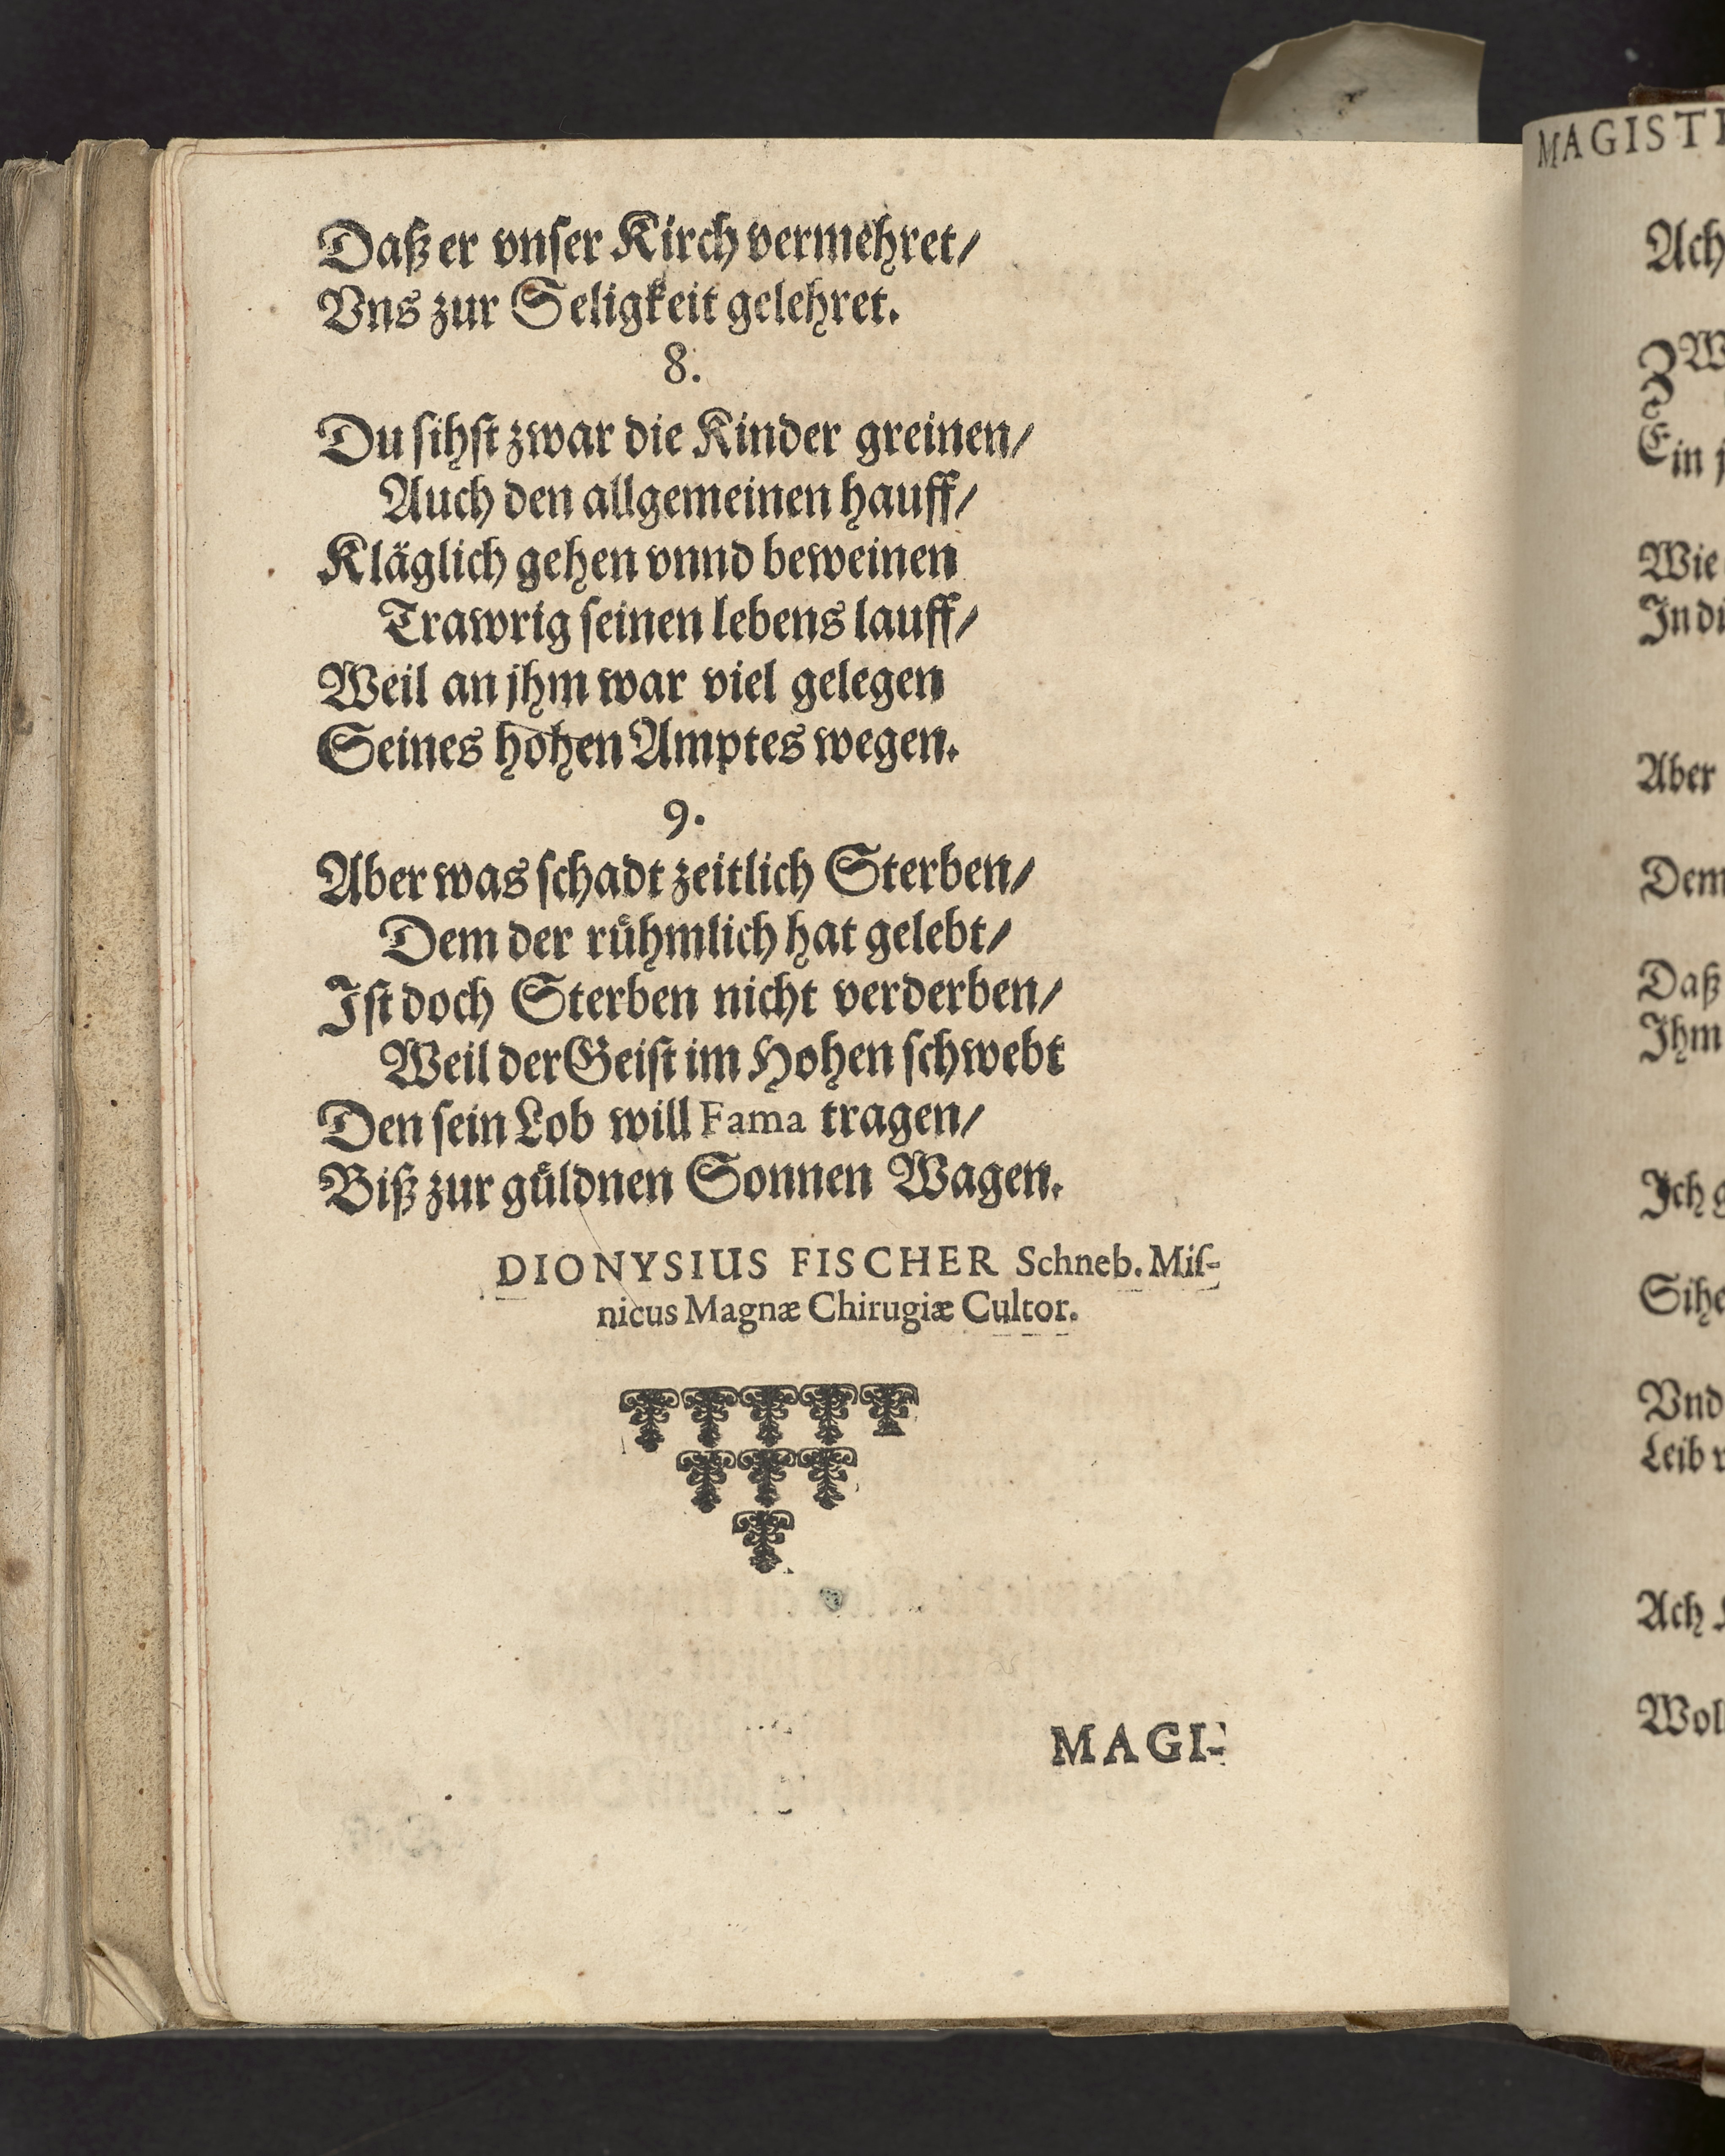 Daß er vnſer Kirch vermehret/
Vns zur Seligkeit gelehret.
8.
Du ſihſt zwar die Kinder greinen/
Auch den allgemeinen hauff/
Kläglich gehen vnnd beweinen
Trawrig ſeinen lebens lauff/
Weil an jhm war viel gelegen
Seines hohen Amptes wegen.
9.
Aber was ſchadt zeitlich Sterben/
Dem der ruͤhmlich hat gelebt/
Iſt doch Sterben nicht verderben/
Weil der Geiſt im Hohen ſchwebt
Den ſein Lob will Fama tragen/
Biß zur guͤldnen Sonnen Wagen.
DIONYSIUS FISCHER Schneb. Miſ-
nicus Magnæ Chirugiæ Cultor.
MAGI-
Ach
Ein
Wie
In
Aber
Dem
Daß
Ihm
Ich
Sihe
Vnd
Leib
Ach